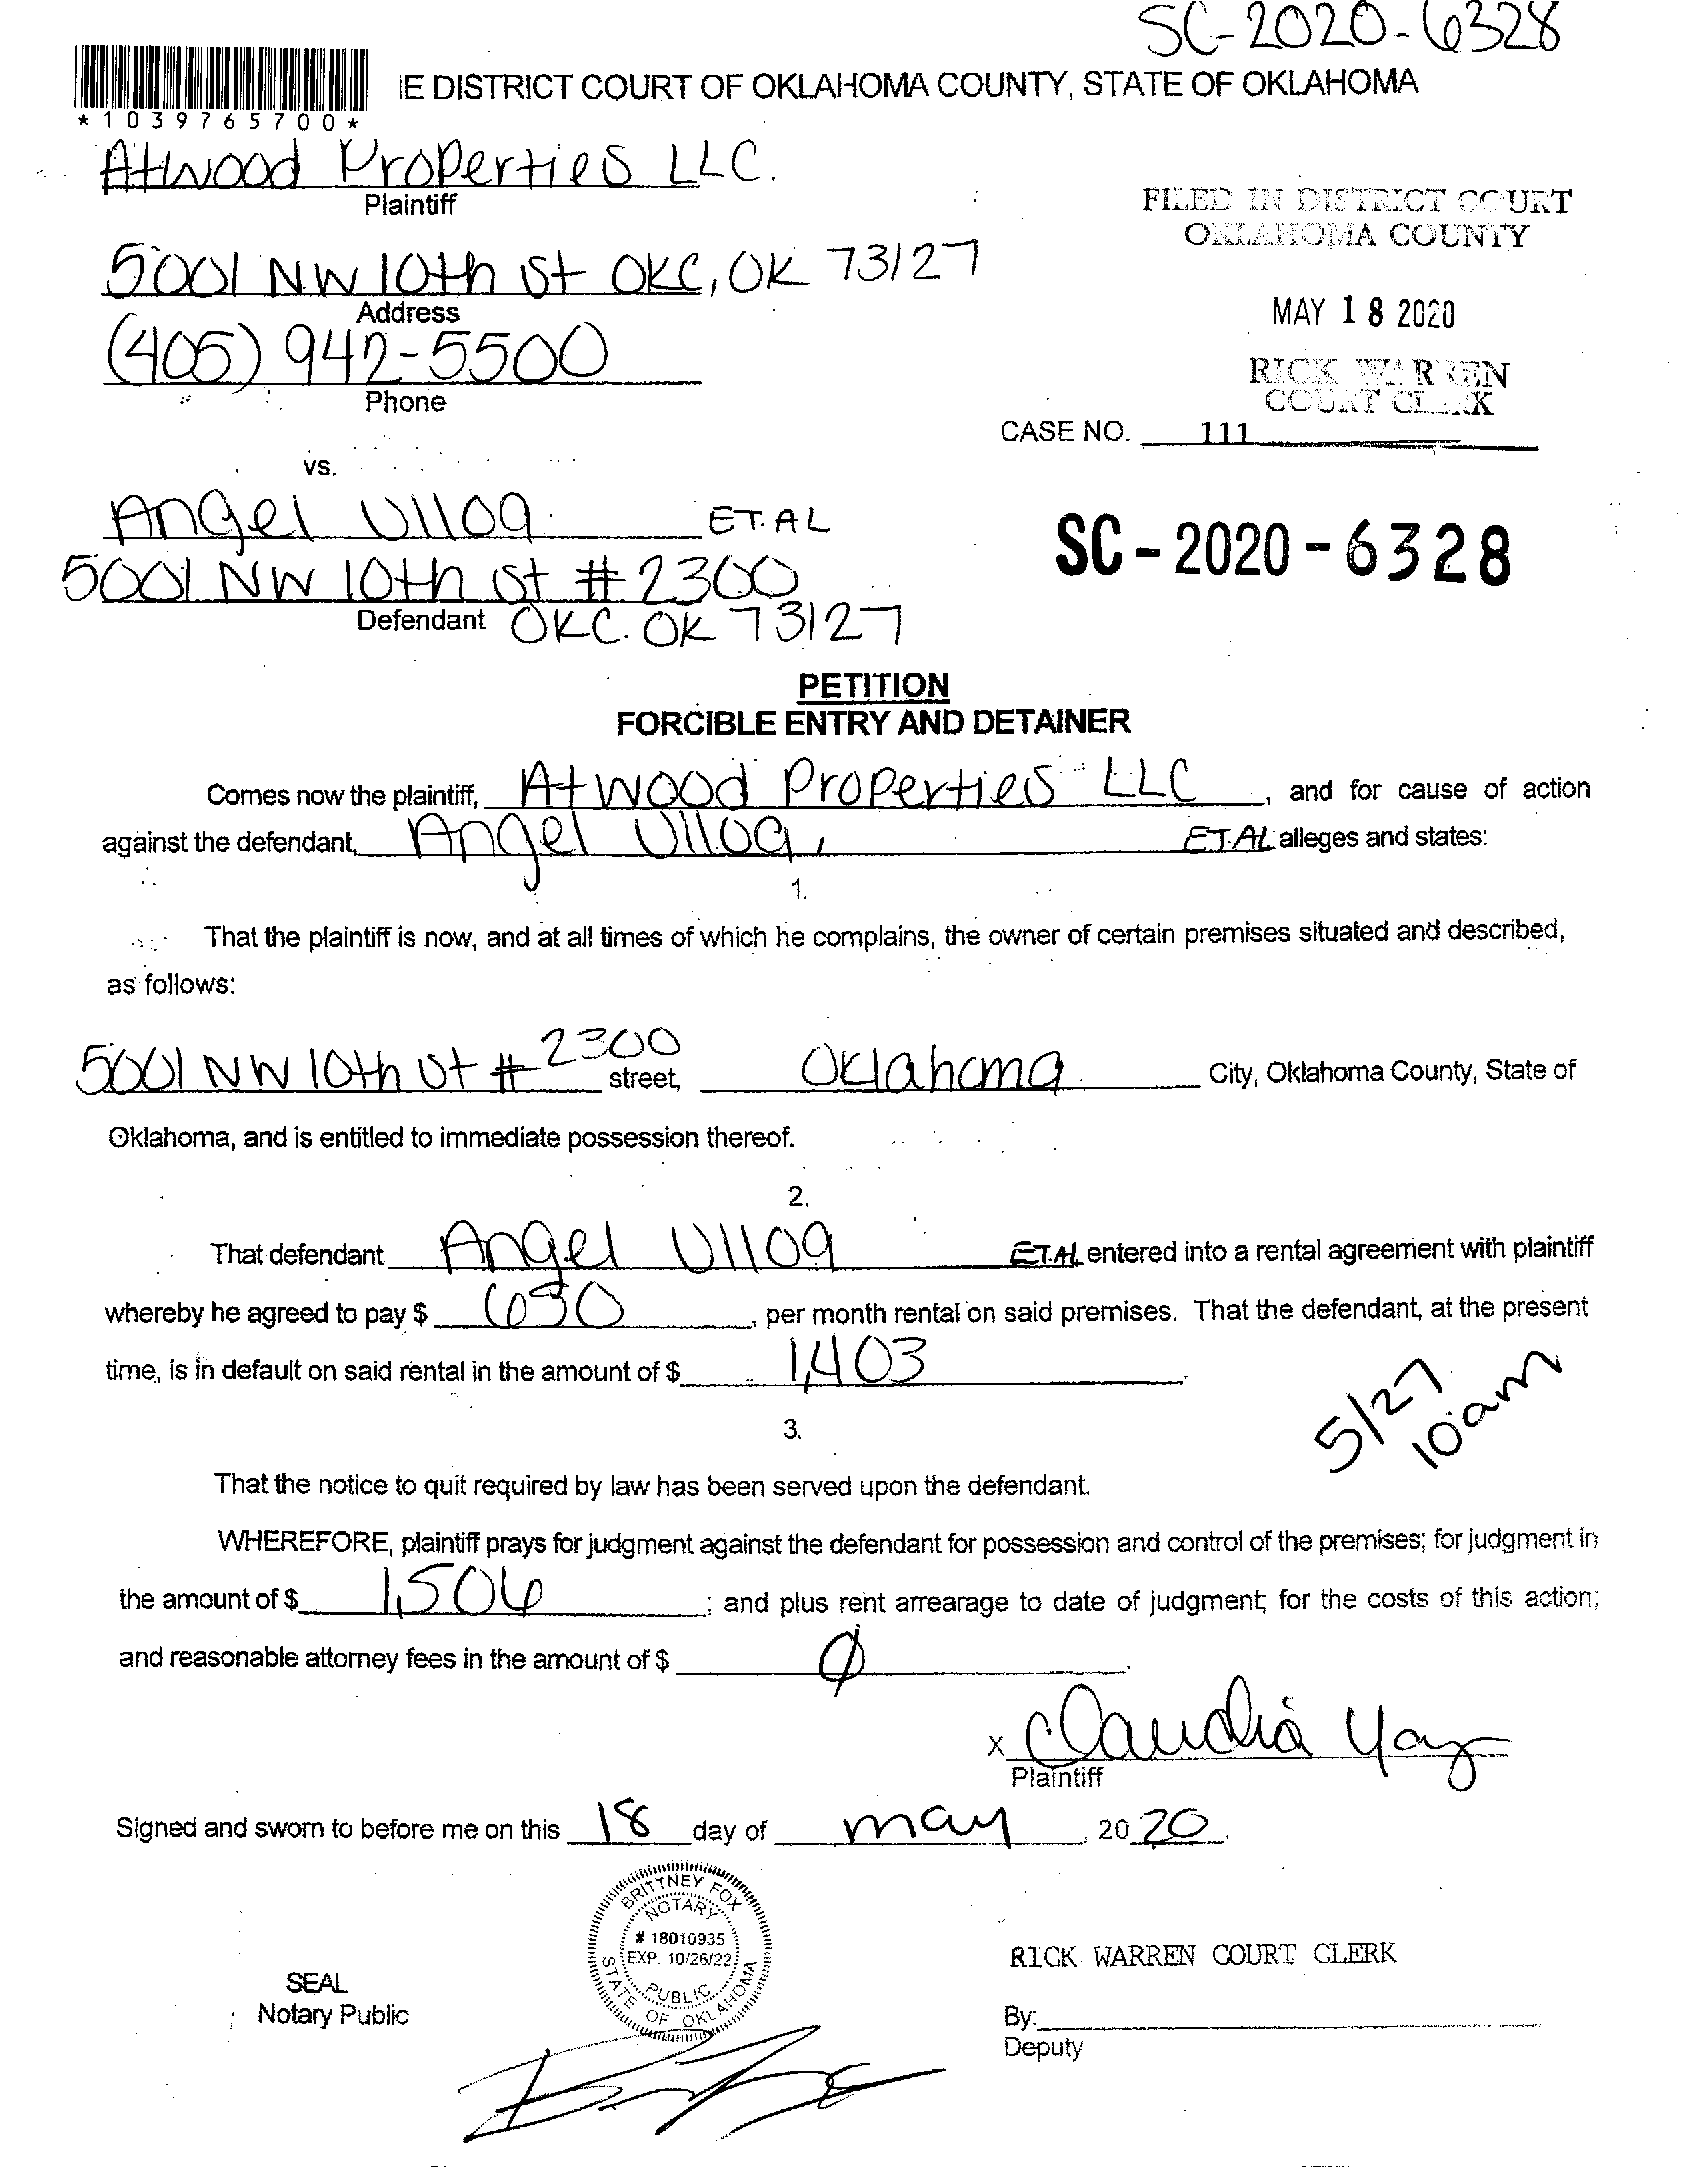 SC-2020-6328
IE DISTRICT COURT OF OKLAHOMA COUNTY, STATE OF OKLAHOMA
*1039765700*
Atwood Properties LLC.
Plaintiff
FILED IN DISTRICT COURT
OKLAHOMA COUNTY
5001 NW 10th St OKC, OK 73127
Address
MAY 18 2020
(405) 942-5500
Phone
RICK WARREN
COURT CLERK
CASE NO. 111
vs.
Angel Ulloa ET.AL
SC-2020-6328
5001 NW 10th St # 2300
Defendant OKC. OK 73127
PETITION
FORCIBLE ENTRY AND DETAINER
Comes now the plaintiff, Atwood Properties LLC, and for cause of action
against the defendant, Angel Ulloa, ET.AL alleges and states:
1.
That the plaintiff is now, and at all times of which he complains, the owner of certain premises situated and described,
as follows:
5001 NW 10th St # 2300 street, Oklahoma City, Oklahoma County, State of
Oklahoma, and is entitled to immediate possession thereof.
2.
That defendant Angel Ulloa ET.AL entered into a rental agreement with plaintiff
whereby he agreed to pay $ 630, per month rental on said premises. That the defendant, at the present
time, is in default on said rental in the amount of $ 1,403.
5/27
10am
3.
That the notice to quit required by law has been served upon the defendant.
WHEREFORE, plaintiff prays for judgment against the defendant for possession and control of the premises; for judgment in
the amount of $ 1,506; and plus rent arrearage to date of judgment; for the costs of this action;
and reasonable attorney fees in the amount of $ Ø.
x Claudia Yay
Plaintiff
Signed and sworn to before me on this 18 day of may, 2020.
BRITTNEY FOX
NOTARY
# 18010935
EXP. 10/26/22
PUBLIC
STATE OF OKLAHOMA
RICK WARREN COURT CLERK
SEAL
Notary Public
By:
Deputy